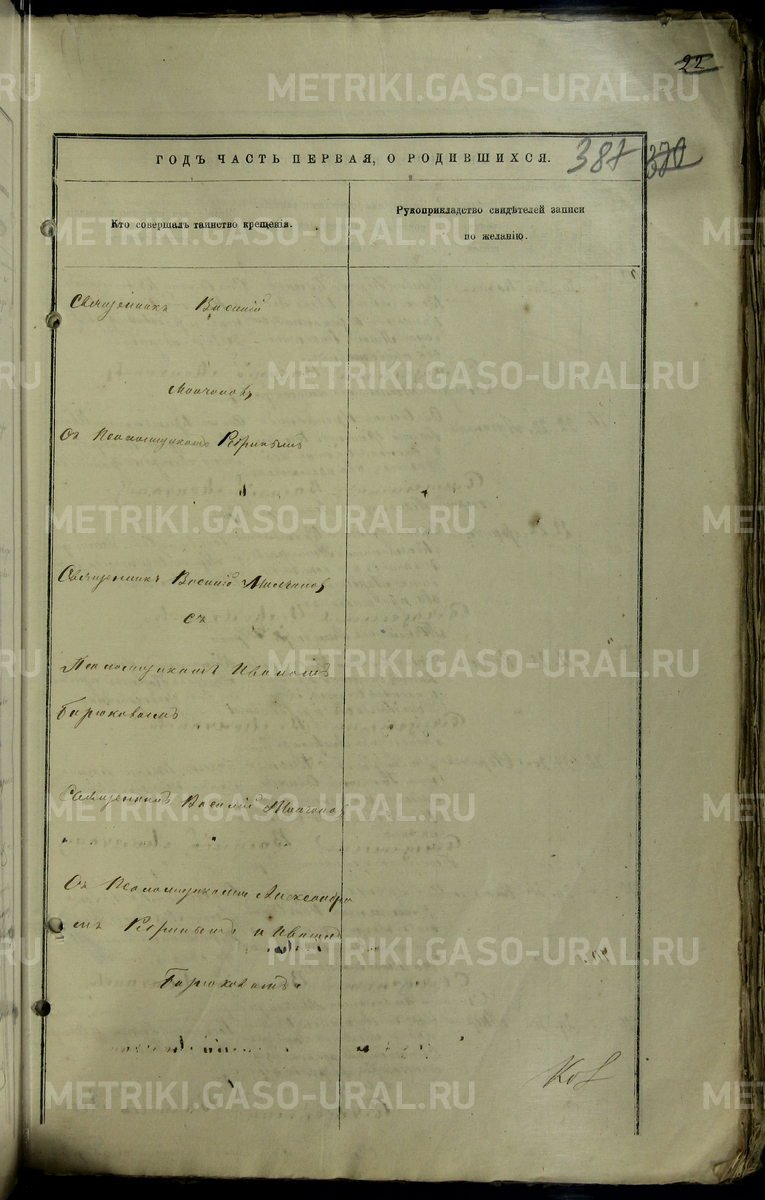 22
ГОДЪ ЧАСТЬ ПЕРВАЯ, О РОДИВШИХСЯ.
387
370
Кто совершалъ таинство крещенія.
Рукоприкладство свидѣтелей записи
по желанію.
Священникъ Василій
Молчановъ
Съ Псаломщикомъ Рѣпинымъ
Священникъ Василій Молчановъ
съ
Псаломщикомъ Иваномъ
Бирюковымъ
Священникъ Василій Молчановъ
Съ Псаломщиками Александро
мъ и Иваномъ
Бирюковымъ
METRIKI.GASO-URAL.RU